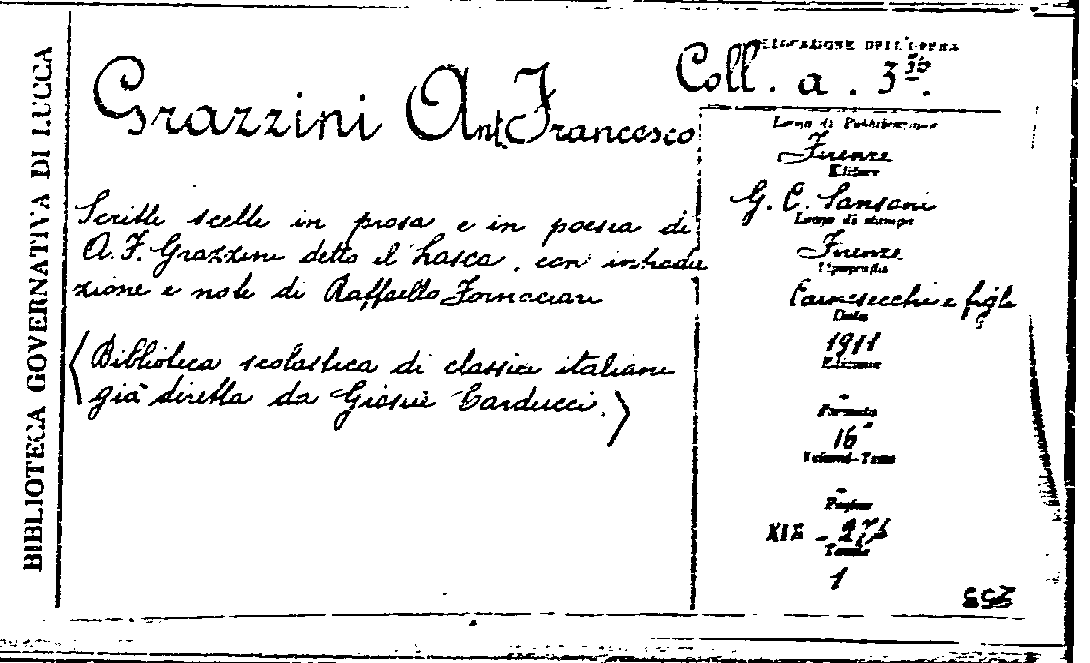 BIBLIOTECA GOVERNATIVA DI LUCCA
COLLOCAZIONE DELL'OPERA
Coll. a. 3
Grazzini Ant. Francesco
Scritti scelti in prosa e in poesia di
A. F. Grazzini detto il Lasca, con introdu
zione e note di Raffaello Fornaciari
(Biblioteca scolastica di classici italiani
già diretta da Giosuè Carducci.)
Luogo di Pubblicazione
Firenze
Editore
G. C. Sansoni
Luogo di stampa
Firenze
Tipografia
Carnesecchi e figli
Data
1911
Edizione
"
Formato
16°
Volumi-Tomi
"
Pagine
XIX - 
Tavole
1